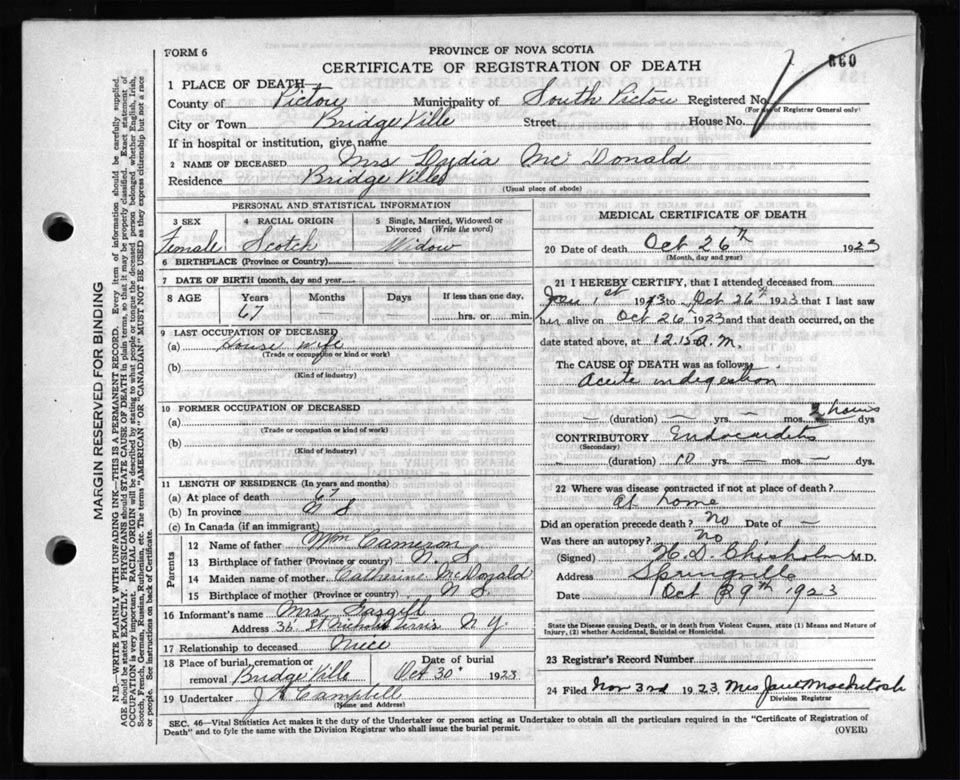 FORM 6
PROVINCE OF NOVA SCOTIA
CERTIFICATE OF REGISTRATION OF DEATH
860
1 PLACE OF DEATH
County of Pictou Municipality of South Pictou Registered No.
(For use of Registrar General only)
City or Town Bridge Ville Street House No.
If in hospital or institution, give name
2 NAME OF DECEASED Mrs Lydia Mc Donald
Residence Bridge Ville
(Usual place of abode)
PERSONAL AND STATISTICAL INFORMATION
3 SEX 4 RACIAL ORIGIN 5 Single, Married, Widowed or Divorced (Write the word)
Female Scotch Widow
6 BIRTHPLACE (Province or Country)
7 DATE OF BIRTH (month, day and year)
8 AGE Years Months Days If less than one day,
67 — — hrs. or min.
9 LAST OCCUPATION OF DECEASED
(a) House wife
(Trade or occupation or kind or work)
(b)
(Kind of industry)
10 FORMER OCCUPATION OF DECEASED
(a)
(Trade or occupation or kind or work)
(b)
(Kind of industry)
11 LENGTH OF RESIDENCE (In years and months)
(a) At place of death 67
(b) In province N S
(c) In Canada (if an immigrant)
Parents
12 Name of father Wm Cameron
13 Birthplace of father (Province or country) N. S.
14 Maiden name of mother Catherine McDonald
15 Birthplace of mother (Province or country) N S
16 Informant's name Mrs
Address 36 St Nicholas N. Y.
17 Relationship to deceased Niece
18 Place of burial, cremation or removal Bridge Ville
Date of burial Oct 30 1923
19 Undertaker J Campbell
(Name and Address)
MEDICAL CERTIFICATE OF DEATH
20 Date of death Oct 26th 1923
(Month, day and year)
21 I HEREBY CERTIFY, that I attended deceased from,
Jan 1st 1913 to Oct 26th 1923 that I last saw
her alive on Oct 26th 1923 and that death occurred, on
date stated above, at 12.15 a.m.
The CAUSE OF DEATH was as follows
Acute indigestion
— (duration) — yrs. — mos. 2 hours dys
CONTRIBUTORY Endocarditis
(Secondary)
(duration) 10 yrs. — mos. — dys.
22 Where was disease contracted if not at place of death?
At home
Did an operation precede death? No Date of —
Was there an autopsy? No
(Signed) H. D. Chisholm M.D.
Address Springville
Date Oct 29th 1923
State the Disease causing Death, or in death from Violent Causes, state (1) Means and Nature of Injury, (2) whether Accidental, Suicidal or Homicidal.
23 Registrar's Record Number
24 Filed Nov 3rd 1923 Mrs Janet MacIntosh
Division Registrar
SEC. 46—Vital Statistics Act makes it the duty of the Undertaker or person acting as Undertaker to obtain all the particulars required in the "Certificate of Registration of
Death" and to fyle the same with the Division Registrar who shall issue the burial permit.
(OVER)
MARGIN RESERVED FOR BINDING
N.B.—WRITE PLAINLY WITH UNFADING INK—THIS IS A PERMANENT RECORD. Every item of information should be carefully supplied.
AGE should be stated EXACTLY. PHYSICIANS should STATE CAUSE OF DEATH in plain terms, so that it may be properly classified. Exact statement of
OCCUPATION is very important. RACIAL ORIGIN will be described by stating to what people or tongue the deceased person belonged whether English, Irish,
Scotch, French, German, Russian, Ruthenian, etc. The terms "AMERICAN" OR "CANADIAN" MUST NOT BE USED as they express citizenship but not a race
or people. See instructions on back of Certificate.